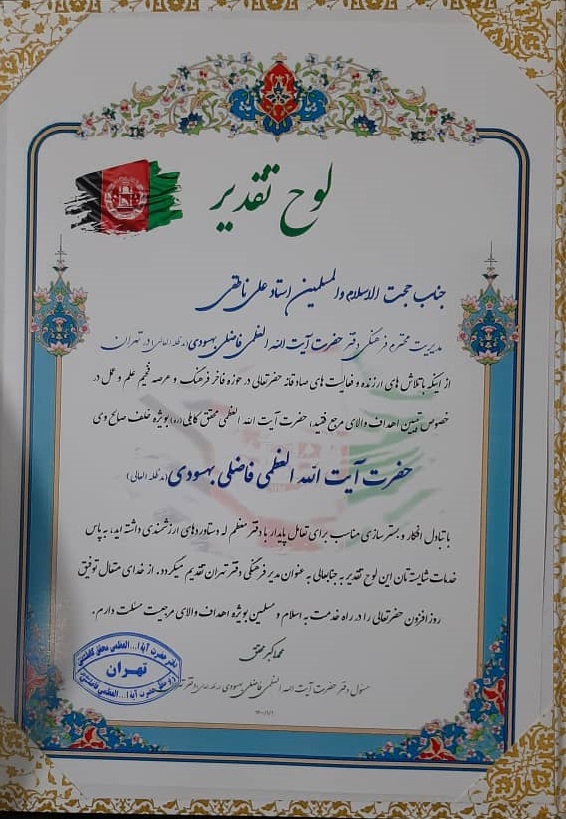 لوح تقدیر
جناب حجت الاسلام والمسلمین استاد علی ناطقی
مدیریت محترم فرهنگی دفتر حضرت آیت الله العظمی فاضلی بهسودی(مدظله العالی) در تهران
از اینکه با تلاش های ارزنده و فعالیت های صادقانه حضرتعالی در حوزه فاخر فرهنگ و عرصه فخیم علم و عمل در
خصوص تبیین اهداف والای مرجع فقید، حضرت آیت الله العظمی محقق کابلی(ره) بویژه خلف صالح وی
حضرت آیت الله العظمی فاضلی بهسودی(مدظله العالی)
با تبادل افکار و بسترسازی مناسب برای تعامل پایدار با دفتر معظم له دستاوردهای ارزشمندی داشته اید، به پاس
خدمات شایسته تان این لوح تقدیر به جنابعالی به عنوان مدیر فرهنگی دفتر تهران تقدیم میگردد. از خدای متعال توفیق
روز افزون حضرتعالی را در راه خدمت به اسلام و مسلمین بویژه اهداف والای مرجعیت مسئلت دارم.
محمد اکبر محقق
مسئول دفتر حضرت آیت الله العظمی فاضلی بهسودی
دفتر حضرت آیة ا... العظمی محقق کابلی
تهران
حضرت آیة ا... العظمی فاضلی